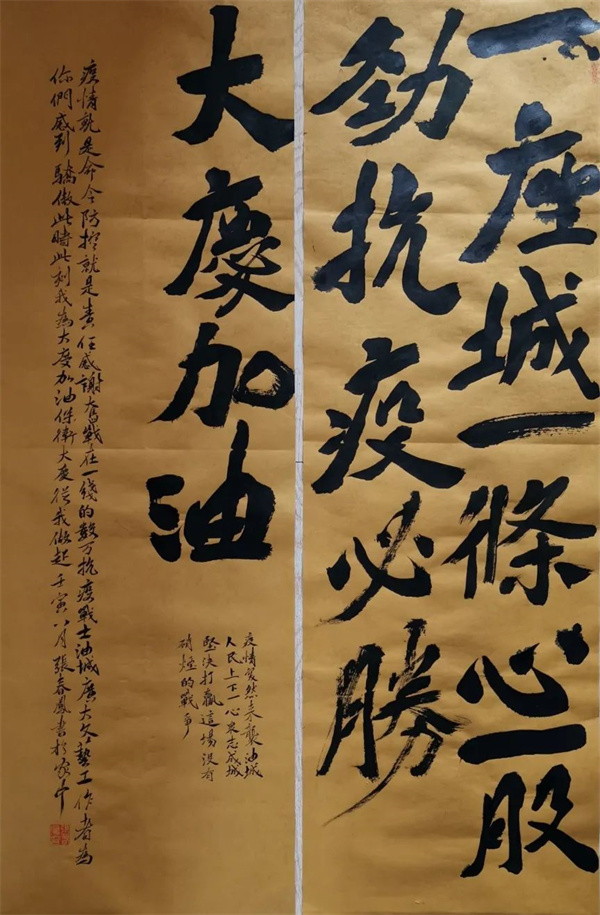 一座城一條心一股
勁抗疫必勝
大慶加油
疫情突然来襲油城
人民上下一心眾志成城
堅決打贏這場没有
硝煙的戰争
疫情就是命令防控就是責任感謝奮戰在一綫的數万抗疫戰士油城廣大文藝工作者為
你們感到驕傲此時此刻我為大慶加油保衛大慶從我做起壬寅八月張春鳳書於家中